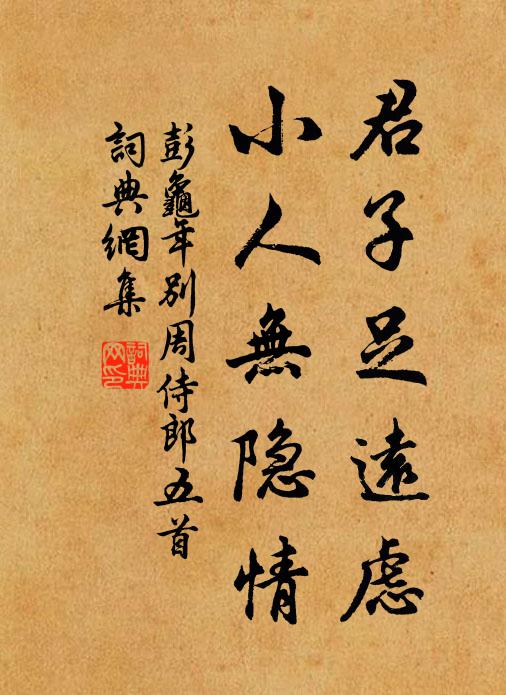 君子足遠慮
小人無隐情
彭龜年別周侍郎五首
詞典網集
詞典网印